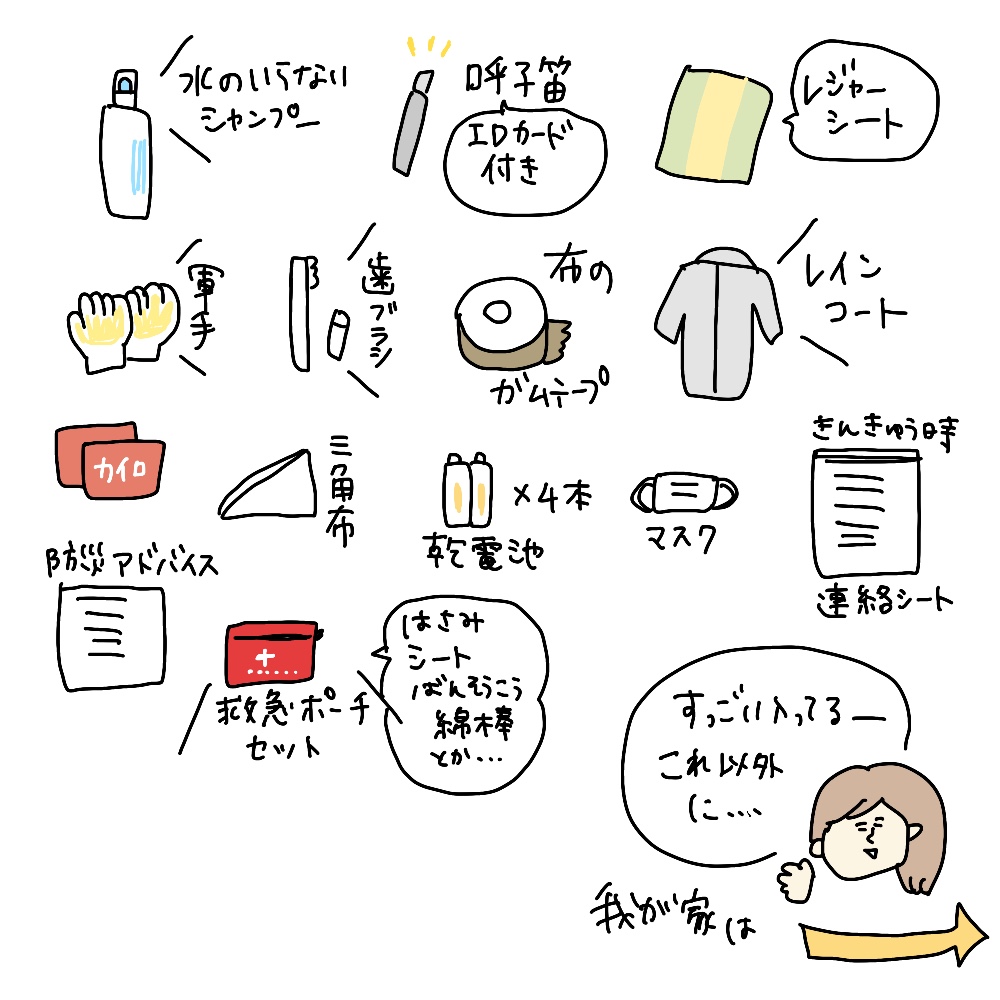 水のいらない
シャンプー
呼子笛
IDカード
付き
レジャー
シート
軍手
歯ブラシ
布の
ガムテープ
レイン
コート
カイロ
三角布
×4本
乾電池
マスク
きんきゅう時
連絡シート
防災アドバイス
救急ポーチ
セット
はさみ
シート
ばんそうこう
綿棒
とか...
すっごい入ってるー
これ以外
に....
我が家は